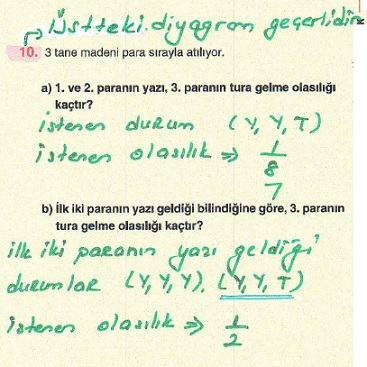 Üstteki diyagram geçerlidir
10. 3 tane madeni para sırayla atılıyor.
a) 1. ve 2. paranın yazı, 3. paranın tura gelme olasılığı
kaçtır?
istenen durum (Y, Y, T)
istenen olasılık ⇒ 1/8
7
b) İlk iki paranın yazı geldiği bilindiğine göre, 3. paranın
tura gelme olasılığı kaçtır?
ilk iki paranın yazı geldiği
durumlar (Y, Y, Y), (Y, Y, T)
istenen olasılık ⇒ 1/2